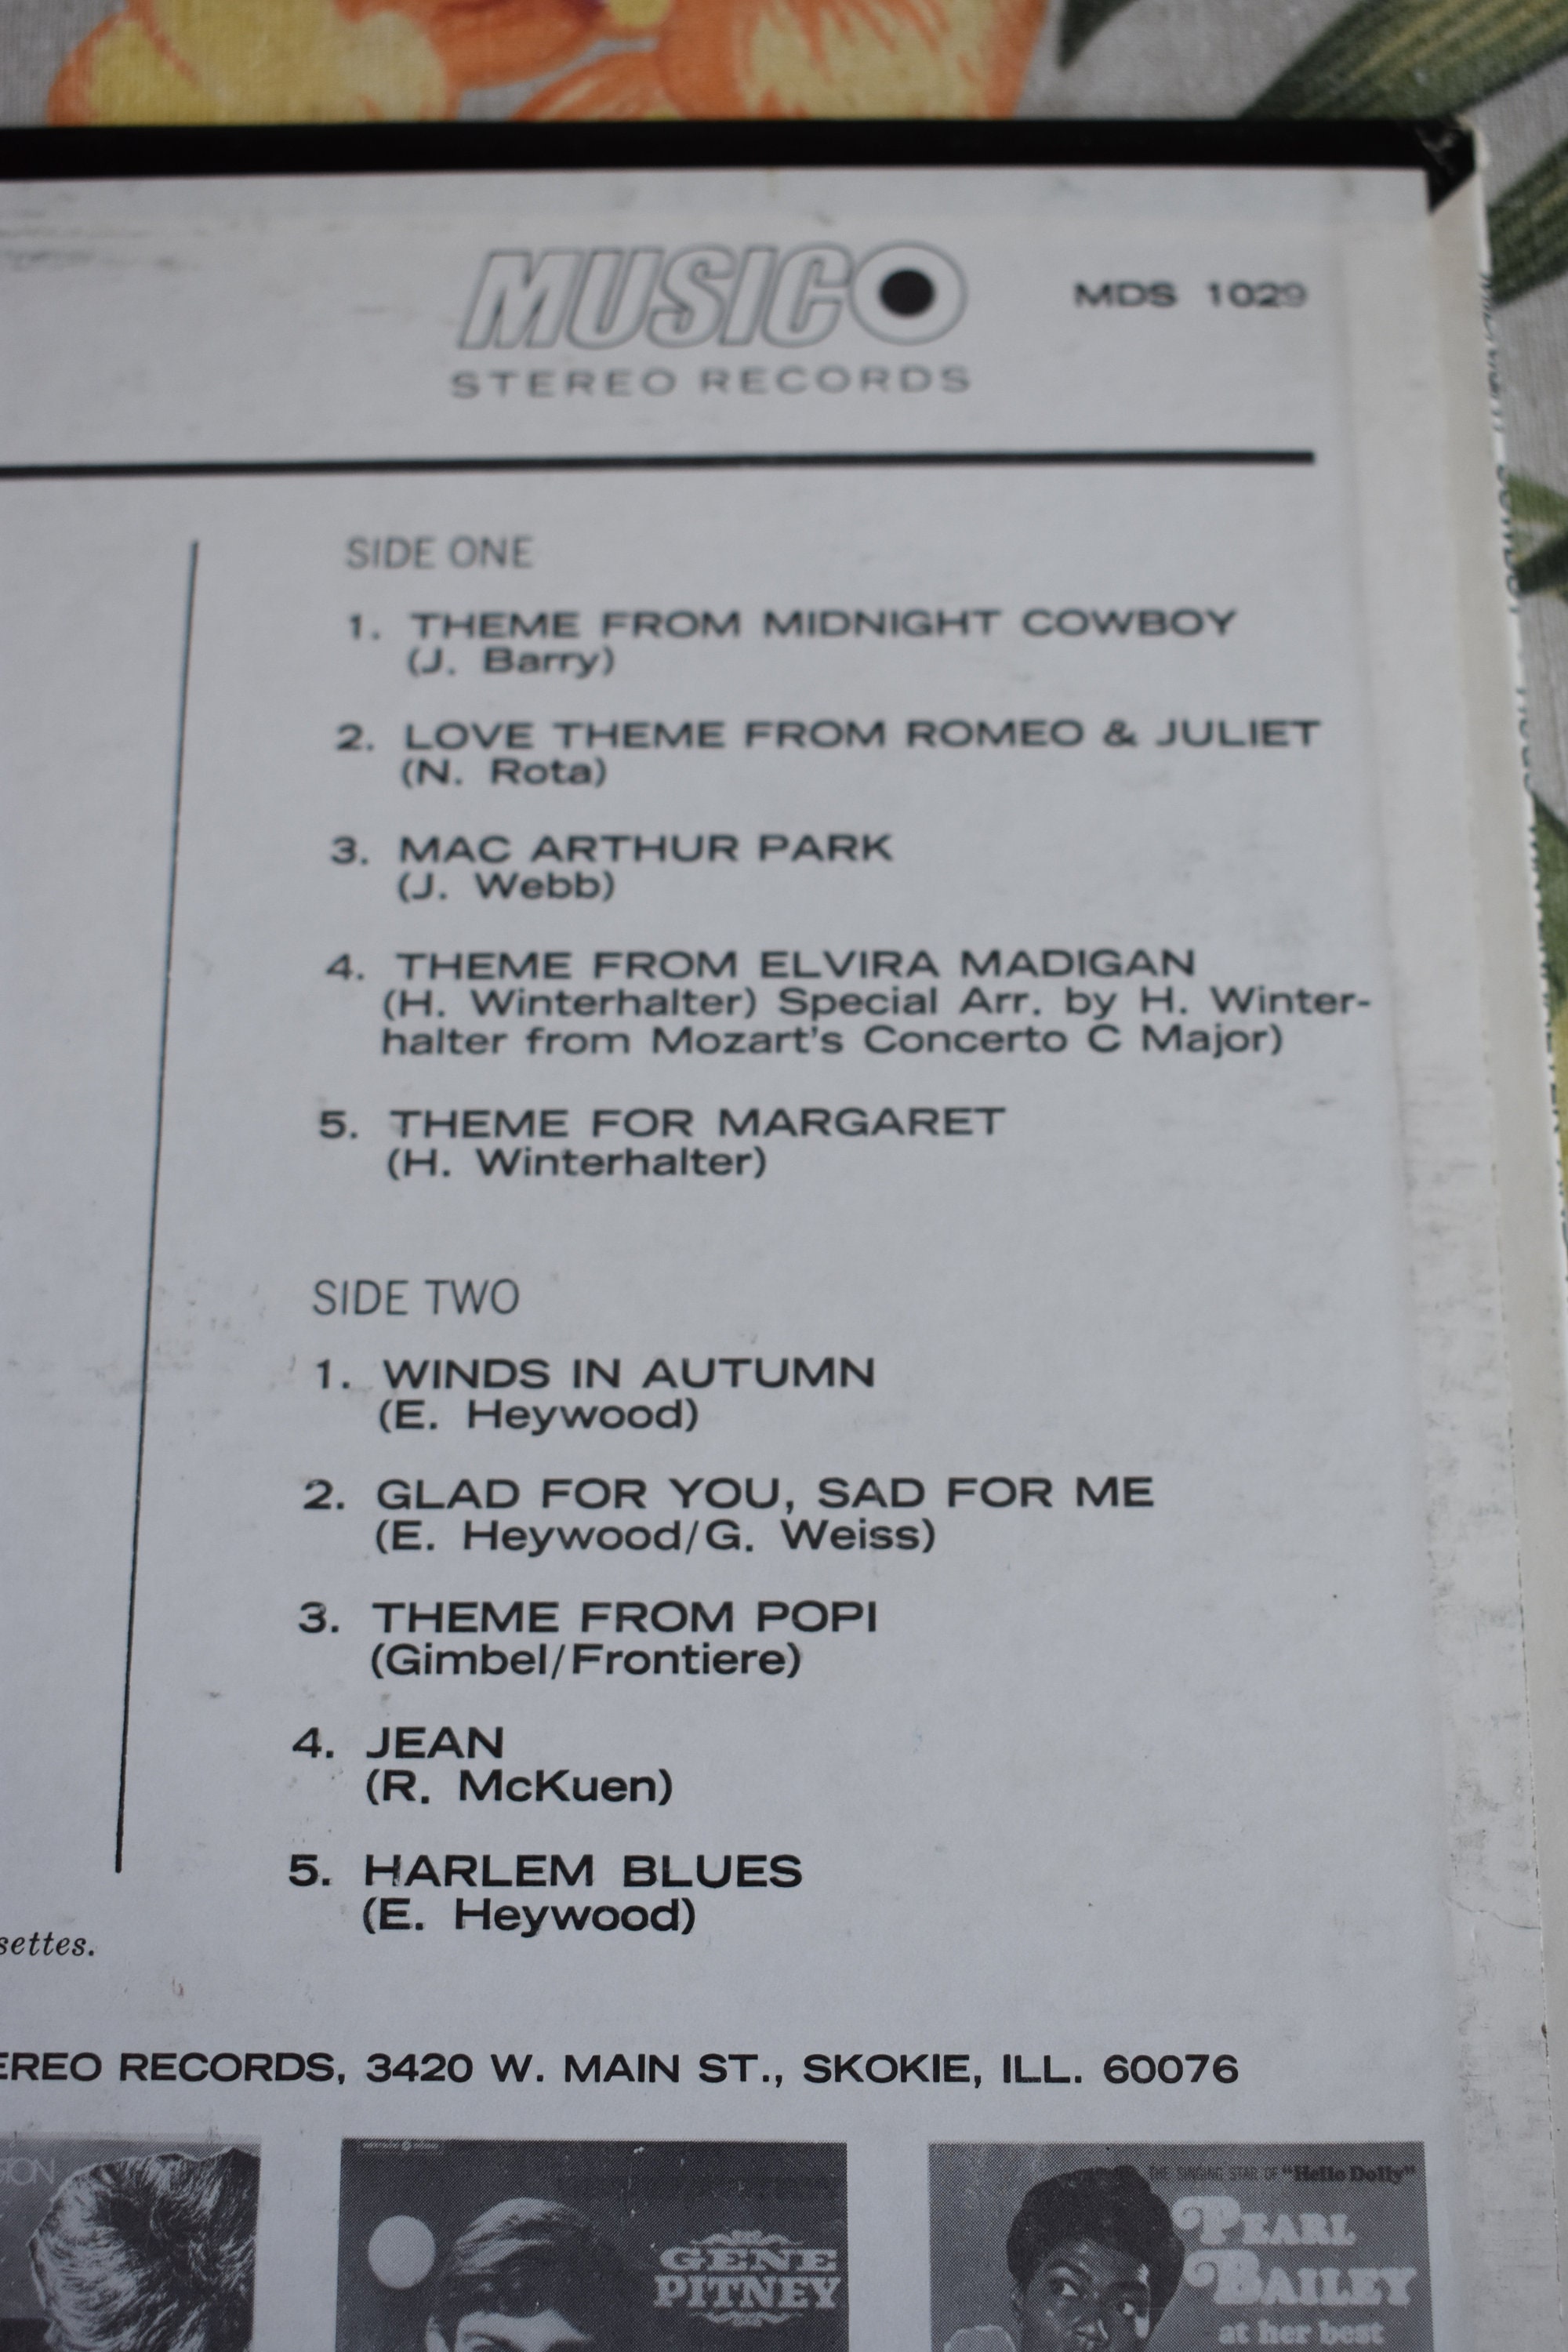 MUSICO
STEREO RECORDS
MDS 1029
SIDE ONE
1. THEME FROM MIDNIGHT COWBOY
(J. Barry)
2. LOVE THEME FROM ROMEO & JULIET
(N. Rota)
3. MAC ARTHUR PARK
(J. Webb)
4. THEME FROM ELVIRA MADIGAN
(H. Winterhalter) Special Arr. by H. Winter-
halter from Mozart's Concerto C Major)
5. THEME FOR MARGARET
(H. Winterhalter)
SIDE TWO
1. WINDS IN AUTUMN
(E. Heywood)
2. GLAD FOR YOU, SAD FOR ME
(E. Heywood/G. Weiss)
3. THEME FROM POPI
(Gimbel/Frontiere)
4. JEAN
(R. McKuen)
5. HARLEM BLUES
(E. Heywood)
settes.
EREO RECORDS, 3420 W. MAIN ST., SKOKIE, ILL. 60076
GENE
PITNEY
THE SINGING STAR OF "Hello Dolly"
PEARL
BAILEY
at her best